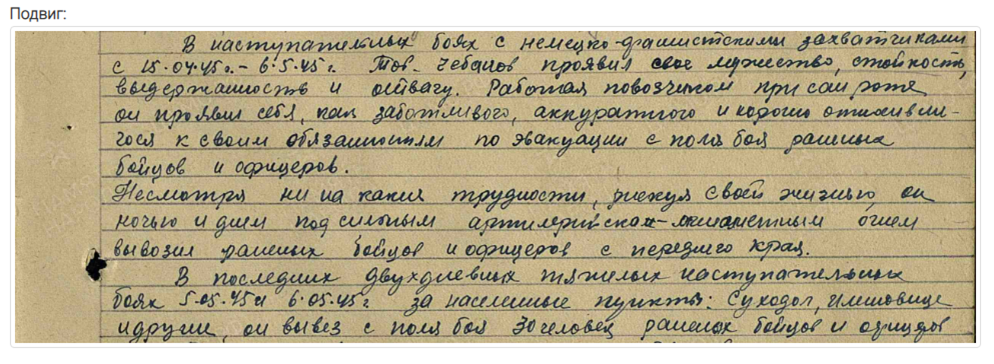 Подвиг:
В наступательных боях с немецко-фашистскими захватчиками
с 15.04.45г. - 6.5.45г. Тов. Чебанов проявил свое мужество, стойкость,
выдержанность и отвагу. Работая повозчиком при сан роте
он проявил себя, как заботливого, аккуратного и хорошо относивши-
гося к своим обязанностям по эвакуации с поля боя раненых
бойцов и офицеров.
Несмотря ни на какие трудности, рискуя своей жизнью он
ночью и днем под сильным артилерийском-минометным огнем
вывозил раненых бойцов и офицеров с переднего края.
В последних двухдневных тяжелых наступательных
боях 5.05.45 и 6.05.45г. за населенные пункты: Суходол,
и другие, он вывез с поля боя 30 человек раненых бойцов и офицеров